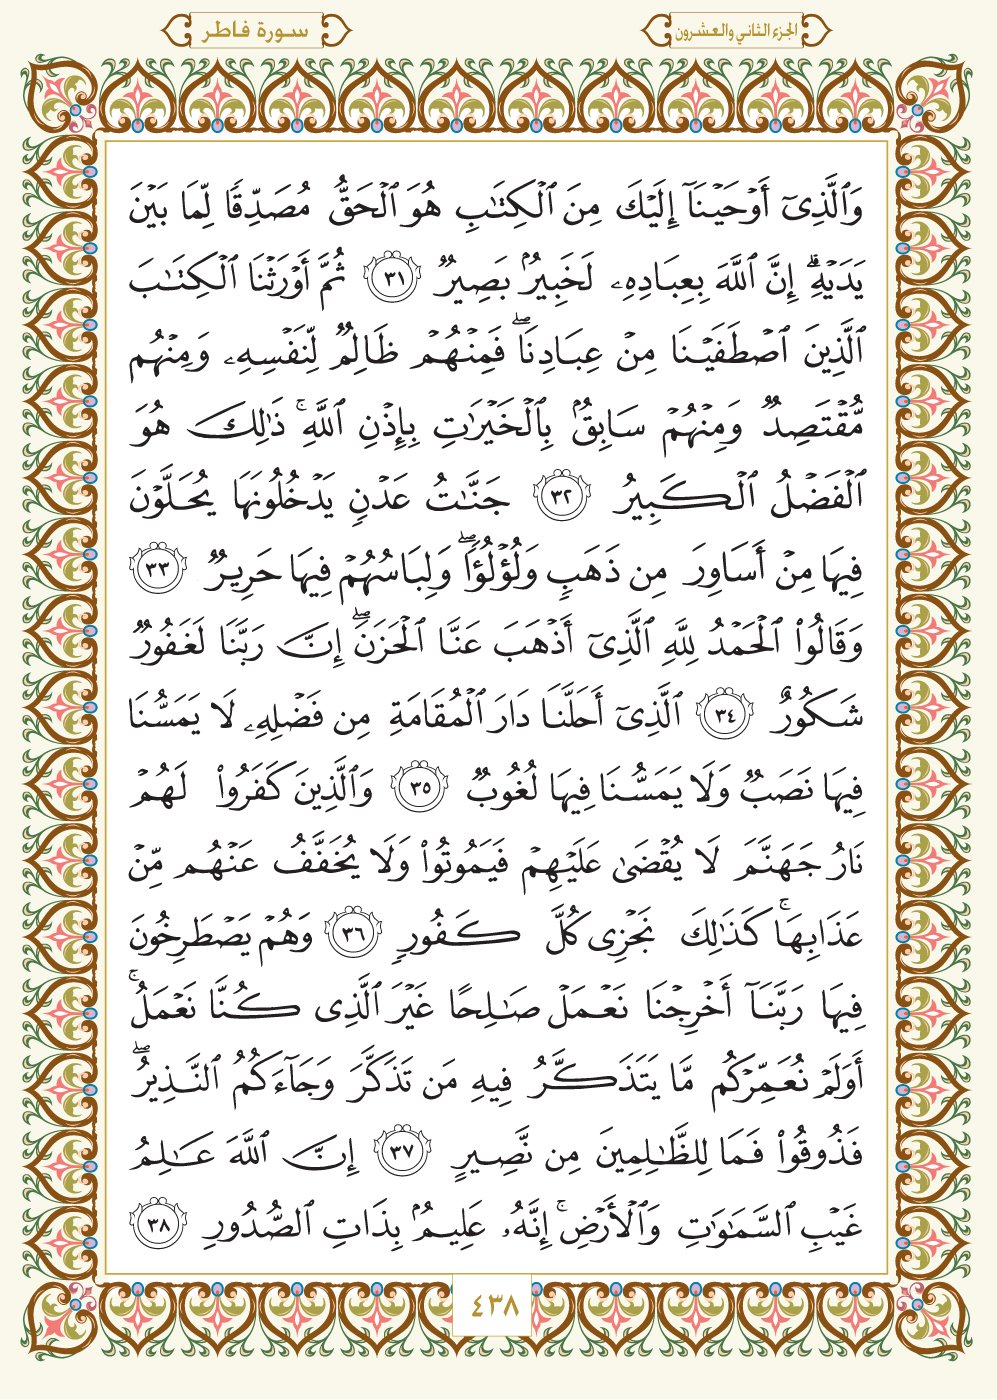 الجزء الثاني والعشرون
سورة فاطر
وَٱلَّذِىٓ أَوۡحَيۡنَآ إِلَيۡكَ مِنَ ٱلۡكِتَٰبِ هُوَ ٱلۡحَقُّ مُصَدِّقٗا لِّمَا بَيۡنَ
يَدَيۡهِۗ إِنَّ ٱللَّهَ بِعِبَادِهِۦ لَخَبِيرُۢ بَصِيرٞ ٣١ ثُمَّ أَوۡرَثۡنَا ٱلۡكِتَٰبَ
ٱلَّذِينَ ٱصۡطَفَيۡنَا مِنۡ عِبَادِنَاۖ فَمِنۡهُمۡ ظَالِمٞ لِّنَفۡسِهِۦ وَمِنۡهُم
مُّقۡتَصِدٞ وَمِنۡهُمۡ سَابِقُۢ بِٱلۡخَيۡرَٰتِ بِإِذۡنِ ٱللَّهِۚ ذَٰلِكَ هُوَ
ٱلۡفَضۡلُ ٱلۡكَبِيرُ ٣٢ جَنَّٰتُ عَدۡنٖ يَدۡخُلُونَهَا يُحَلَّوۡنَ
فِيهَا مِنۡ أَسَاوِرَ مِن ذَهَبٖ وَلُؤۡلُؤٗاۖ وَلِبَاسُهُمۡ فِيهَا حَرِيرٞ ٣٣
وَقَالُواْ ٱلۡحَمۡدُ لِلَّهِ ٱلَّذِىٓ أَذۡهَبَ عَنَّا ٱلۡحَزَنَۖ إِنَّ رَبَّنَا لَغَفُورٞ
شَكُورٌ ٣٤ ٱلَّذِىٓ أَحَلَّنَا دَارَ ٱلۡمُقَامَةِ مِن فَضۡلِهِۦ لَا يَمَسُّنَا
فِيهَا نَصَبٞ وَلَا يَمَسُّنَا فِيهَا لُغُوبٞ ٣٥ وَٱلَّذِينَ كَفَرُواْ لَهُمۡ
نَارُ جَهَنَّمَ لَا يُقۡضَىٰ عَلَيۡهِمۡ فَيَمُوتُواْ وَلَا يُخَفَّفُ عَنۡهُم مِّنۡ
عَذَابِهَاۚ كَذَٰلِكَ نَجۡزِى كُلَّ كَفُورٖ ٣٦ وَهُمۡ يَصۡطَرِخُونَ
فِيهَا رَبَّنَآ أَخۡرِجۡنَا نَعۡمَلۡ صَٰلِحًا غَيۡرَ ٱلَّذِى كُنَّا نَعۡمَلُۚ
أَوَلَمۡ نُعَمِّرۡكُم مَّا يَتَذَكَّرُ فِيهِ مَن تَذَكَّرَ وَجَآءَكُمُ ٱلنَّذِيرُۖ
فَذُوقُواْ فَمَا لِلظَّٰلِمِينَ مِن نَّصِيرٍ ٣٧ إِنَّ ٱللَّهَ عَٰلِمُ
غَيۡبِ ٱلسَّمَٰوَٰتِ وَٱلۡأَرۡضِۚ إِنَّهُۥ عَلِيمُۢ بِذَاتِ ٱلصُّدُورِ ٣٨
٤٣٨